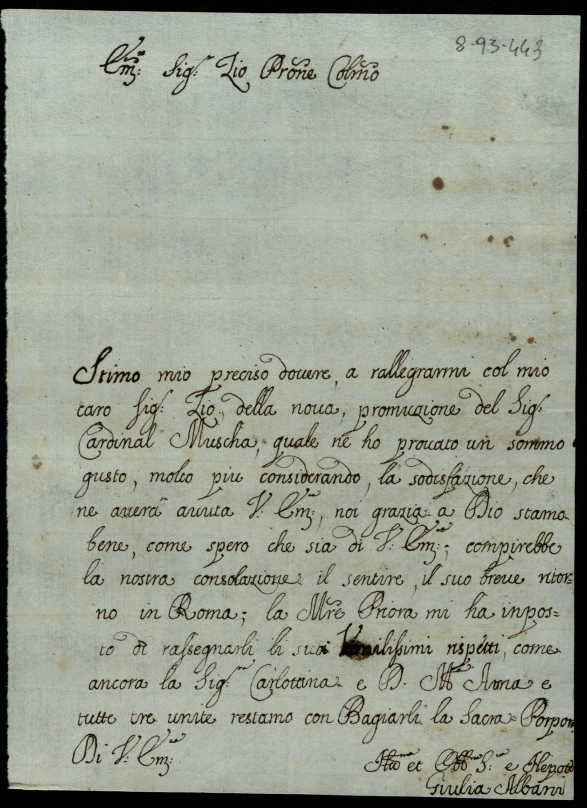 8-93-443
Em:mo Sig:r Zio Prone Colmo
Stimo mio preciso douere, a rallegrarmi col mio
caro Sig:r Zio, della noua, promuzione del Sig:r
Cardinal Muscha, quale ne ho prouato un sommo
gusto, molto piu considerando, la sodisfazione, che
ne auerà auuta V: Em:za, noi grazia a Dio stamo
bene, come spero che sia di V: Em:za; compirebbe
la nostra consolazione il sentire, il suo breue ritor=
no in Roma; la Mre Priora mi ha inpos=
to di rassegnarli li suoi Vmilissimi rispetti, come
ancora la Sig:ra Carlottina e D. M:a Anna e
tutte tre unite restamo con Bagiarli la Sacra Porpora
Di V: Em:za
et Obb:ma S:a e Nepote
Giulia Albani